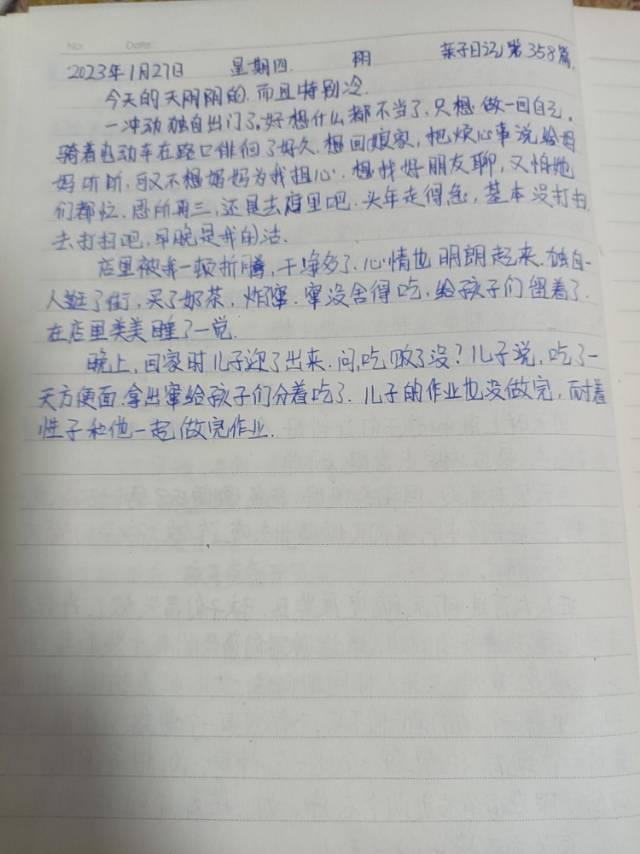 No: Date:
2023年1月27日 星期四. 阴 亲子日记第358篇.
今天的天阴阴的.而且特别冷.
一冲动独自出门了。好想什么都不当了.只想做一回自己.
骑着电动车在路口徘徊了好久.想回娘家,把烦心事说给妈
妈听听,可又不想妈妈为我担心.想找好朋友聊,又怕她
们都忙.思所再三,还是去店里吧.头年走得急,基本没打扫.
去打扫吧,早晚是我的活.
店里被我一顿折腾,干净多了.心情也明朗起来.独自一
人逛了街,买了奶茶,炸串.串没舍得吃,给孩子们留着了.
在店里美美睡了一觉.
晚上,回家时儿子迎了出来.问,吃饭了没?儿子说,吃了一
天方便面.拿出串给孩子们分着吃了.儿子的作业也没做完,耐着
性子和他一起做完作业.